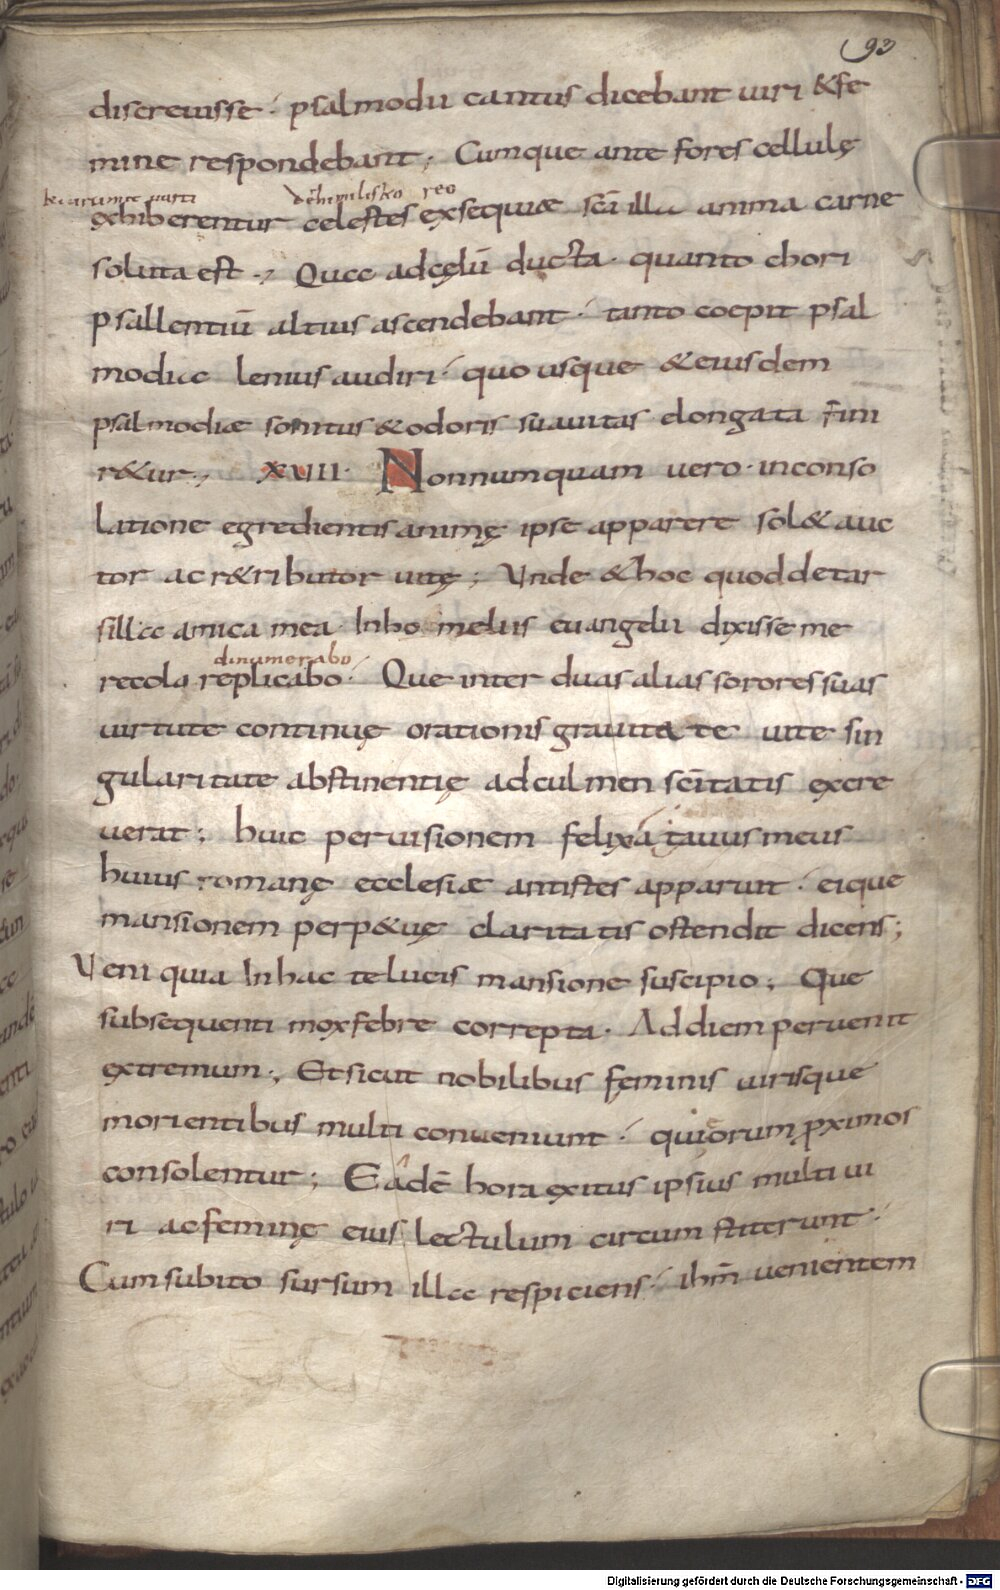 93
discreuisse · psalmodii cantus dicebant uiri &fe
mine respondebant ; Cumque ante fores cellulę
dehimilisko reo
exhiberentur celestes exsequiæ sc̄i illa anima carne
soluta est ·; Quae adcęlū ducta · quanto chori
psallentiū altius ascendebant · tanto coepit psal
modiae lenius audiri · quo usque &eiusdem
psalmodiæ sonitus &odoris suauitas elongata fini
r&ur ·; XVII · Nonnumquam uero · inconso
latione egredientis animę ipse apparere sol& auc
tor ac r&ributor uitę ; Unde &hoc quod detar
sillae amica mea · Inho melus euangelii dixisse me
dinumerabo
recola replicabo · Que inter duas alias sorores suas
uirtute continuę orationis grauitate uite sin
gularitate abstinentię adculmen sc̄itatis excre
uerat ; huic per uisionem felix atauus meus
huius romanę ecclesiæ antistes apparuit · eique
mansionem perp&uę claritatis ostendit dicens ;
Veni quia In hac te lucis mansione suscipio ; Que
subsequenti mox febre correpta · Ad diem peruenit
extremum ·; Et sicut nobilibus feminis uirisque
morientibus multi conueniunt · qui eorum pximos
consolentur ; Eadē hora exitus ipsius multi ui
ri ac feminę eius lectulum circum stiterunt ·
Cum subito sursum illae respiciens · ihm̄ uenientem
Digitalisierung gefördert durch die Deutsche Forschungsgemeinschaft - DFG